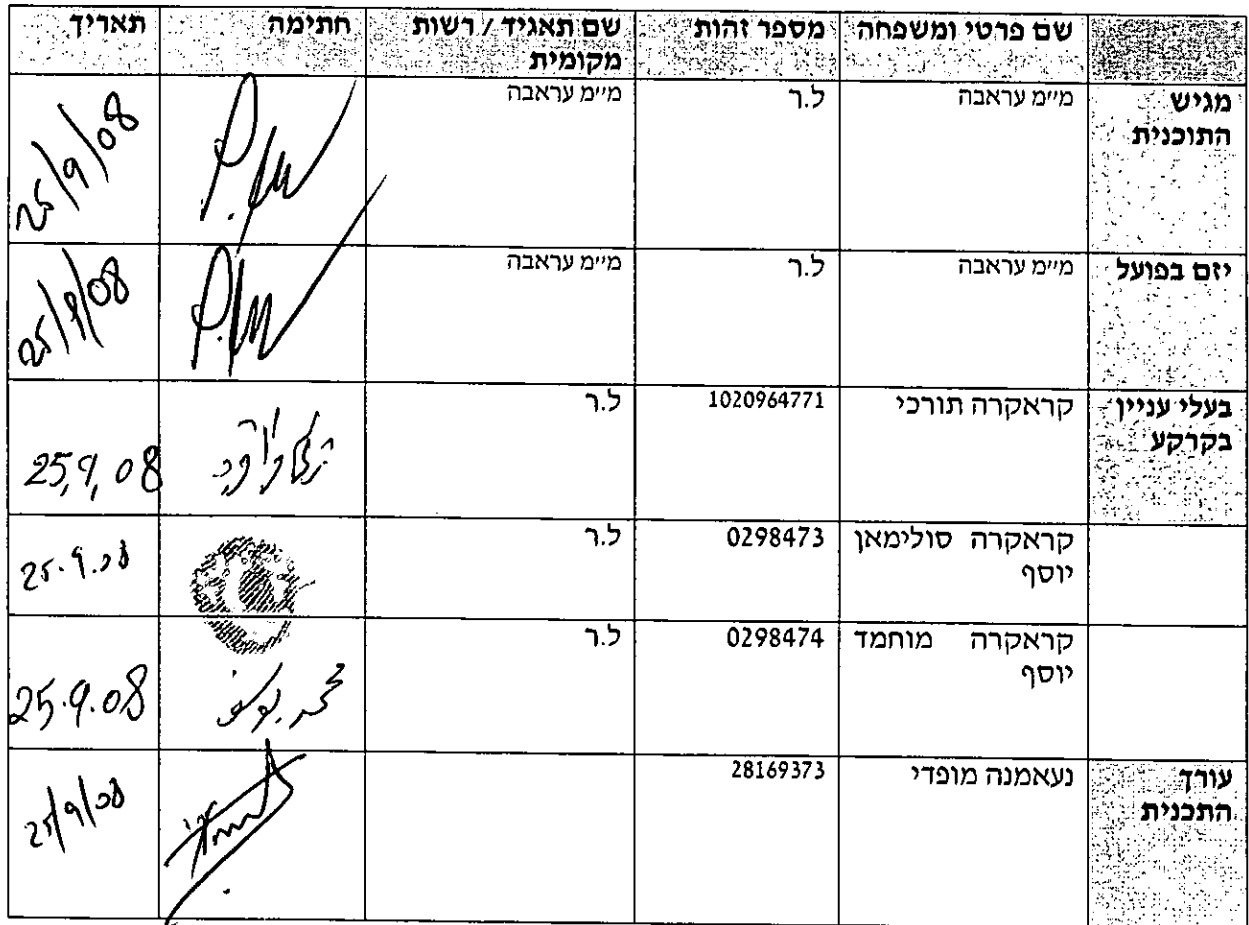 שם פרטי ומשפחה מספר זהות שם תאגיד / רשות מקומית חתימה תאריך
מגיש התוכנית מי״מ עראבה ל.ר מי״מ עראבה 25/9/08
יזם בפועל מי״מ עראבה ל.ר מי״מ עראבה 25/9/08
בעלי עניין בקרקע קראקרה תורכי 1020964771 ל.ר 25,9,08
קראקרה סולימאן יוסף 0298473 ל.ר 25.9.08
קראקרה מוחמד יוסף 0298474 ל.ר 25.9.08
עורך התכנית נעאמנה מופדי 28169373 25/9/08